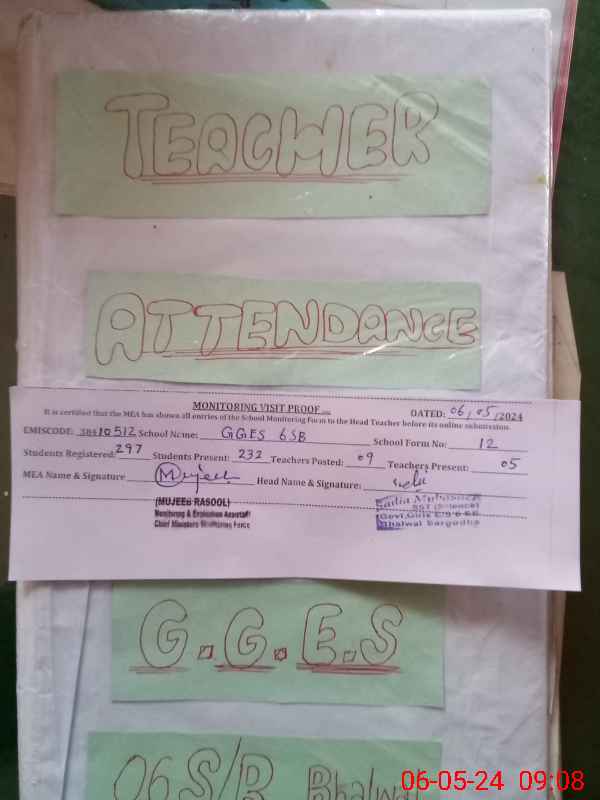 TEACHER
ATTENDANCE
MONITORING VISIT PROOF
DATED: 06/05/2024
It is certified that the MEA has shown all entries of the School Monitoring Form to the Head Teacher before its online submission.
EMISCODE: 38410512 School Name: GGES 6SB School Form No: 12
Students Registered: 297 Students Present: 232 Teachers Posted: 09 Teachers Present: 05
MEA Name & Signature Mujeeb Head Name & Signature:
(MUJEEB RASOOL)
Monitoring & Evaluation Assistant
Chief Ministers Monitoring Force
Sadia
SST (Science)
Govt. Girls E/S 6-SB
Bhalwal Sargodha
G.G.E.S
06 S/B Bhalwal
06-05-24 09:08